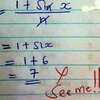 1 + Sin x
n
= 1 + Six
= 1 + 6
= 7
See me!!